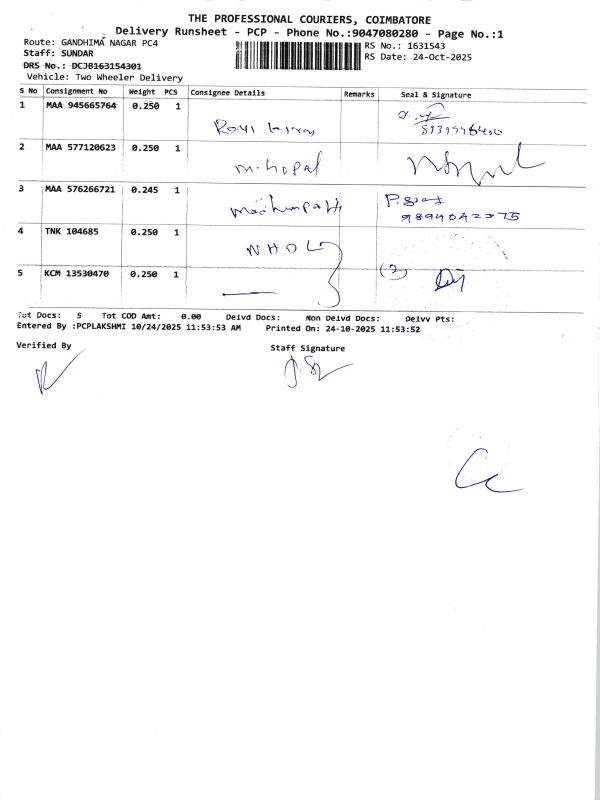 THE PROFESSIONAL COURIERS, COIMBATORE
Delivery Runsheet - PCP - Phone No.:9047080280 - Page No.:1
Route: GANDHIMA NAGAR PC4
RS No.: 1631543
Staff: SUNDAR
RS Date: 24-Oct-2025
DRS No.: DCJB163154301
Vehicle: Two Wheeler Delivery
S No Consignment No Weight PCS Consignee Details Remarks Seal & Signature
1 MAA 945665764 0.250 1
2 MAA 577120623 0.250 1 M. Gopal
3 MAA 576266721 0.245 1
4 TNK 104685 0.250 1 NHDL
5 KCM 13530470 0.250 1 (2)
Tot Docs: 5 Tot COD Amt: 0.00 Delvd Docs: Non Delvd Docs: Delvv Pts:
Entered By :PCPLAKSHMI 10/24/2025 11:53:53 AM Printed On: 24-10-2025 11:53:52
Verified By Staff Signature